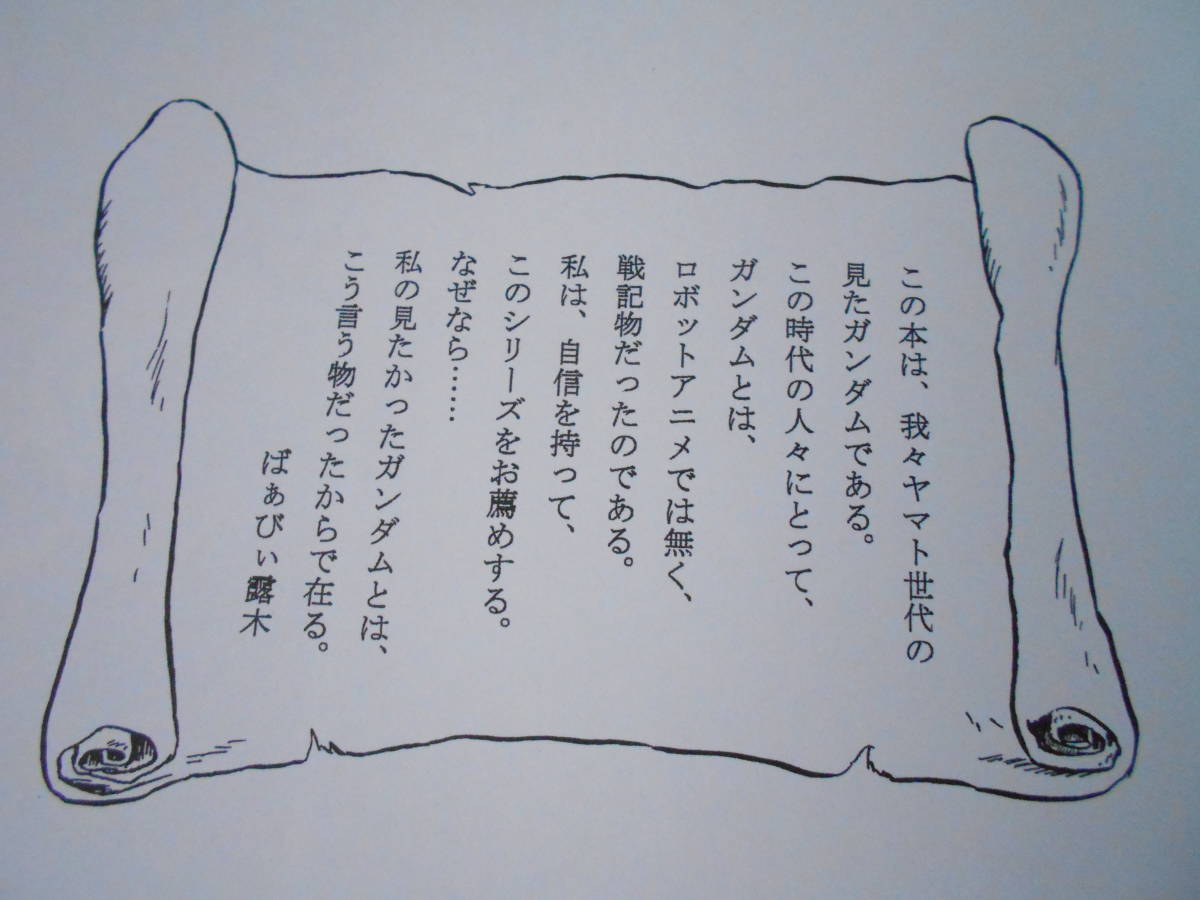 この本は、我々ヤマト世代の
見たガンダムである。
この時代の人々にとって、
ガンダムとは、
ロボットアニメでは無く、
戦記物だったのである。
私は、自信を持って、
このシリーズをお薦めする。
なぜなら……
私の見たかったガンダムとは、
こう言う物だったからで在る。
ばぁびぃ露木